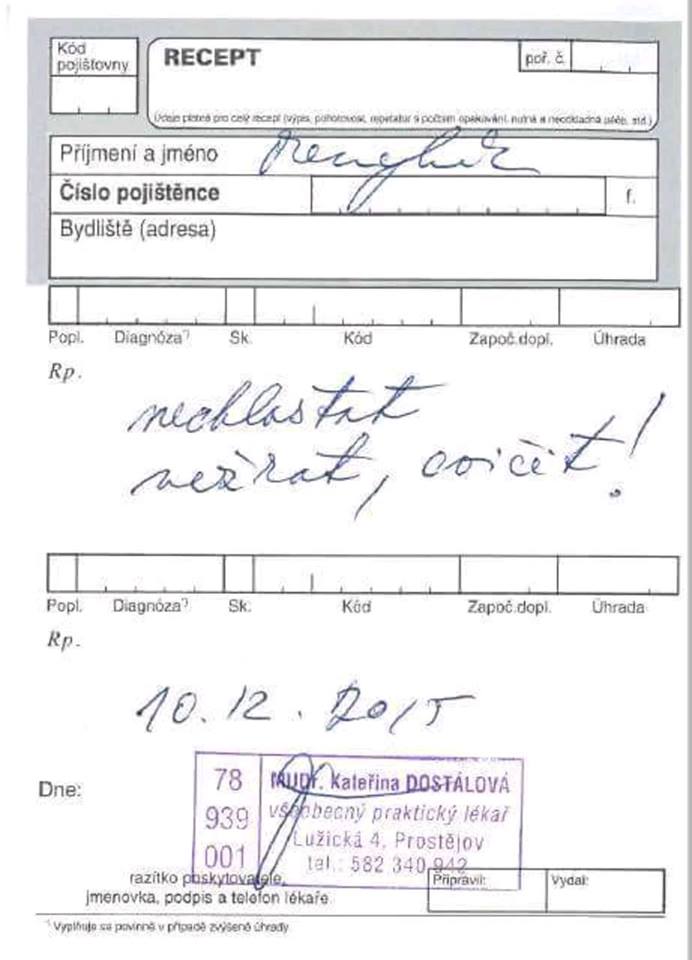 Kód
pojišťovny
RECEPT
poř. č.
Údaje platné pro celý recept (výpis, pohotovost, repetatur s počtem opakování, nutná a neodkladná péče, atd.)
Příjmení a jméno
Číslo pojištěnce
f.
Bydliště (adresa)
Popl. Diagnóza*) Sk. Kód Započ.dopl. Úhrada
Rp.
nechlastat
nežrat, cvičit!
Popl. Diagnóza*) Sk. Kód Započ.dopl. Úhrada
Rp.
10. 12. 2015
Dne:
78
939
001
MUDr. Kateřina DOSTÁLOVÁ
všeobecný praktický lékař
Lužická 4, Prostějov
tel.: 582 340 942
razítko poskytovatele,
jmenovka, podpis a telefon lékaře
Připravil:
Vydal:
*) Vyplňuje se povinně v případě zvýšené úhrady